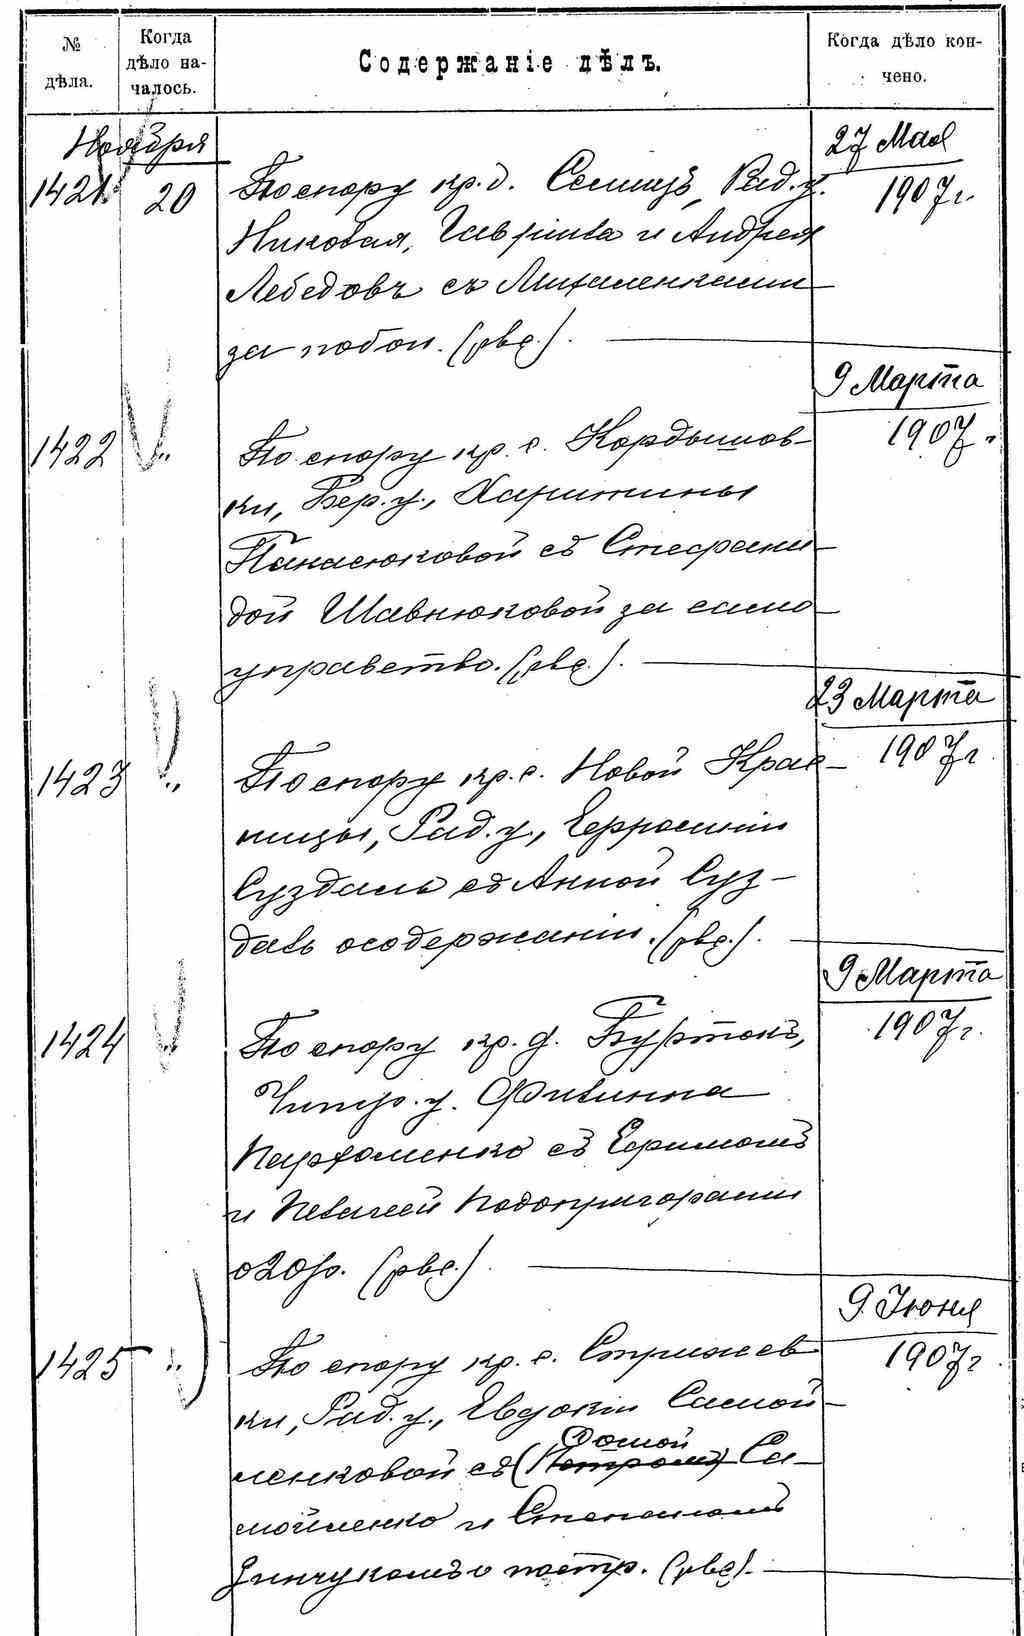 № дѣла.
Когда дѣло на-
чалось.
Содержаніе дѣлъ.
Когда дѣло кон-
чено.
Ноября
27 Мая
1907 г.
1421 20 По спору кр. д. Селищъ, Рад. у.
Николая, Гавріила и Андрея
Лебедовъ съ Михаленками
за побои. (рвс.).
9 Марта
1907 г.
1422 " По спору кр. с. Кордышов-
ки, Бер. у., Харитины
Панасюковой съ Стефани-
дой Шавнюковой за само-
управство. (рвс.).
23 Марта
1907 г.
1423 " По спору кр. с. Новой Крас-
ницы, Рад. у., Ефросиніи
Суздаль съ Анной Суз-
даль о содержаніи. (рвс.).
9 Марта
1907 г.
1424 " По спору кр. д. Буртокъ,
Чигир. у. Филиппа
Пархоменко съ Ефимомъ
и Пелагеей Подопригорами
о 20 р. (рвс.).
9 Іюня
1907 г.
1425 " По спору кр. с. Стрижев
ки, Рад. у., Евдокіи Самой-
ленковой съ (Петромъ) Фомой Са-
мойленко и Степаномъ
о постр. (рвс.).